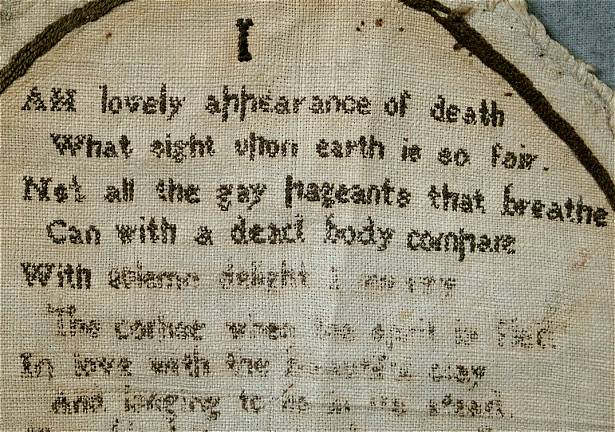 I
AH lovely appearance of death
What sight upon earth is so fair.
Not all the gay pageants that breathe
Can with a dead body compare
With solemn delight I
The corpse when the spirit is fled
In love with the beautiful clay
And longing to lie in its stead.